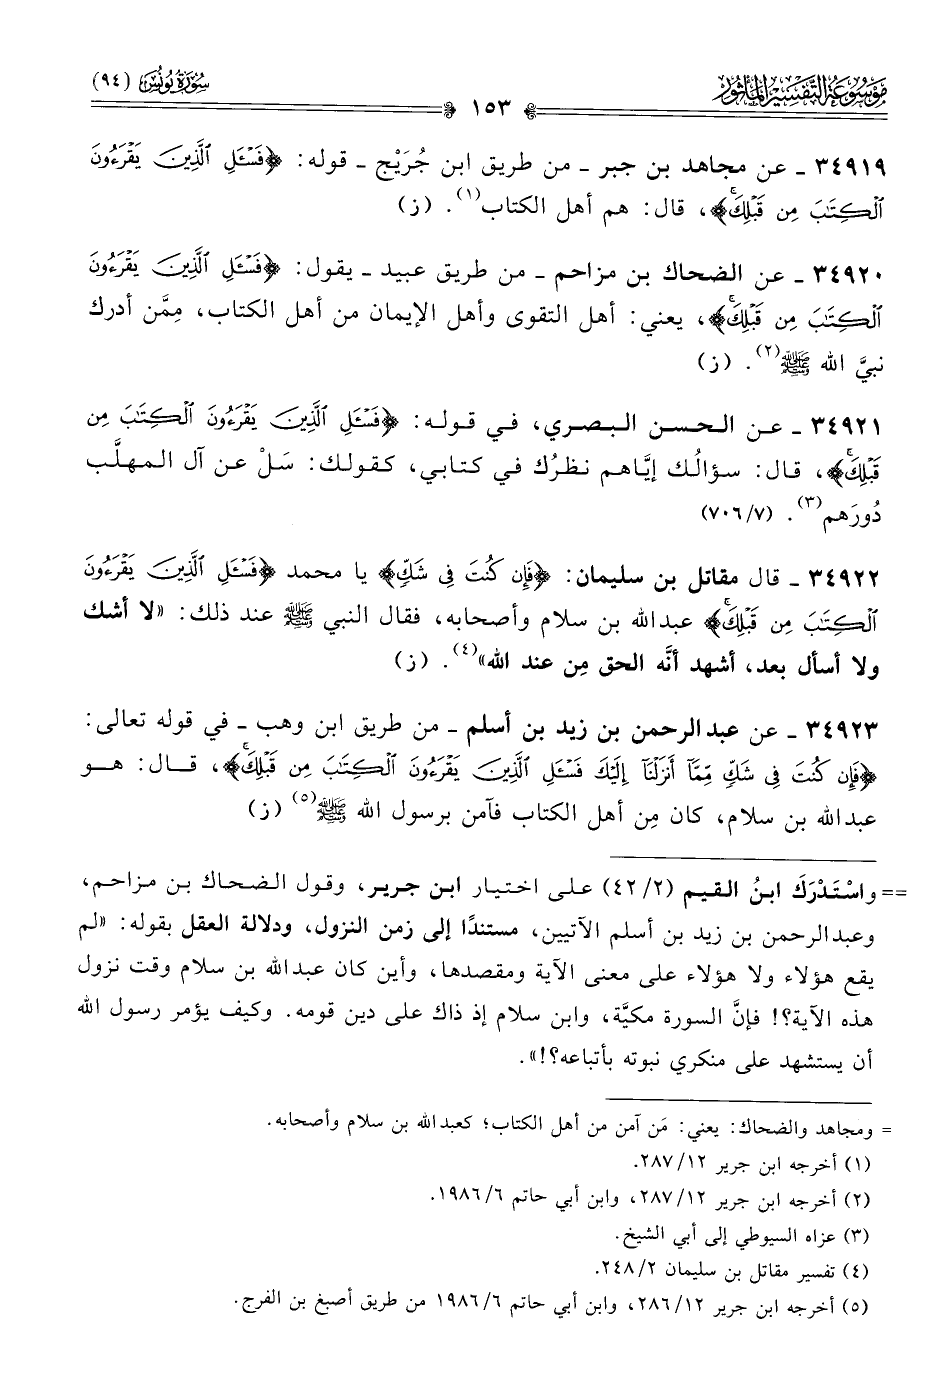 مَوْسُوعَة التَّفْسِير المَأْثُور
١٥٣
سُورَةُ يُونُسَ (٩٤)
٣٤٩١٩ ـ عن مجاهد بن جبر ـ من طريق ابن جُرَيْج ـ قوله: ﴿فَسْـَٔلِ ٱلَّذِينَ يَقْرَءُونَ
ٱلْكِتَٰبَ مِن قَبْلِكَۚ﴾، قال: هم أهل الكتاب(١). (ز)
٣٤٩٢٠ ـ عن الضحاك بن مزاحم ـ من طريق عبيد ـ يقول: ﴿فَسْـَٔلِ ٱلَّذِينَ يَقْرَءُونَ
ٱلْكِتَٰبَ مِن قَبْلِكَۚ﴾، يعني: أهل التقوى وأهل الإيمان من أهل الكتاب، مِمَّن أدرك
نبيَّ الله ﷺ(٢). (ز)
٣٤٩٢١ ـ عـن الـحسن الـبصري، فـي قـولـه: ﴿فَسْـَٔلِ ٱلَّذِينَ يَقْرَءُونَ ٱلْكِتَٰبَ مِن
قَبْلِكَۚ﴾، قـال: سـؤالُـك إيَّـاهـم نـظـرُك فـي كـتـابـي، كـقـولـك: سَـلْ عـن آل الـمـهـلَّـب
دُورَهم(٣). (٧٠٦/٧)
٣٤٩٢٢ ـ قال مقاتل بن سليمان: ﴿فَإِن كُنتَ فِى شَكٍّ﴾ يا محمد ﴿فَسْـَٔلِ ٱلَّذِينَ يَقْرَءُونَ
ٱلْكِتَٰبَ مِن قَبْلِكَۚ﴾ عبدالله بن سلام وأصحابه، فقال النبي ﷺ عند ذلك: «لا أشك
ولا أسأل بعد، أشهد أنَّه الحق مِن عند الله»(٤). (ز)
٣٤٩٢٣ ـ عن عبدالرحمن بن زيد بن أسلم ـ من طريق ابن وهب ـ في قوله تعالى:
﴿فَإِن كُنتَ فِى شَكٍّ مِّمَّآ أَنزَلْنَآ إِلَيْكَ فَسْـَٔلِ ٱلَّذِينَ يَقْرَءُونَ ٱلْكِتَٰبَ مِن قَبْلِكَۚ﴾، قـال: هـو
عبدالله بن سلام، كان مِن أهل الكتاب فآمن برسول الله ﷺ(٥) (ز)
== واسْتَدْرَكَ ابنُ القيم (٤٢/٢) على اختيار ابن جرير، وقول الضحاك بن مزاحم،
وعبدالرحمن بن زيد بن أسلم الآتيين، مستندًا إلى زمن النزول، ودلالة العقل بقوله: «لم
يقع هؤلاء ولا هؤلاء على معنى الآية ومقصدها، وأين كان عبدالله بن سلام وقت نزول
هذه الآية؟! فإنَّ السورة مكيَّة، وابن سلام إذ ذاك على دين قومه. وكيف يؤمر رسول الله
أن يستشهد على منكري نبوته بأتباعه؟!».
= ومجاهد والضحاك: يعني: مَن آمن من أهل الكتاب؛ كعبدالله بن سلام وأصحابه.
(١) أخرجه ابن جرير ٢٨٧/١٢.
(٢) أخرجه ابن جرير ٢٨٧/١٢، وابن أبي حاتم ١٩٨٦/٦.
(٣) عزاه السيوطي إلى أبي الشيخ.
(٤) تفسير مقاتل بن سليمان ٢٤٨/٢.
(٥) أخرجه ابن جرير ٢٨٦/١٢، وابن أبي حاتم ١٩٨٦/٦ من طريق أصبغ بن الفرج.